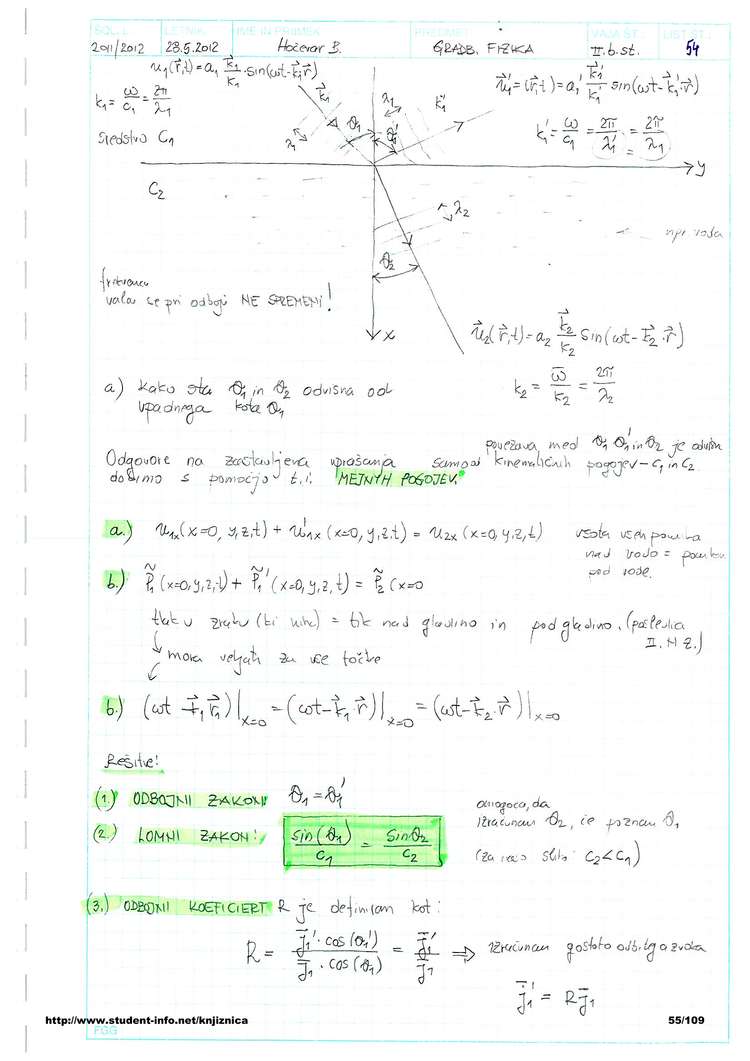 ŠOL. L. LETNIK: IME IN PRIIMEK PREDMET VAJA ŠT.: LIST ŠT.:
2011/2012 28.5.2012 Hočevar B. GRADB. FIZIKA II. b. st. 54
u₁(r⃗,t) = a₁ k⃗₁/k₁ · sin(ωt - k⃗₁r⃗)
k₁ = ω/c₁ = 2π/λ₁
sredstvo C₁
k⃗₁ λ₁ ϑ₁ ϑ₁' λ₁ k⃗₁'
u⃗₁' = (r⃗,t) = a₁' k⃗₁'/k₁' sin(ωt - k⃗₁'·r⃗)
k₁' = ω/c₁ = 2π/λ₁' = 2π/λ₁
y
C₂
λ₂
npr. voda
ϑ₂
frekvenca
vala se pri odboju NE SPREMENI!
x
u⃗₂(r⃗,t) = a₂ k⃗₂/k₂ sin(ωt - k⃗₂·r⃗)
k₂ = ω/k₂ = 2π/λ₂
a) Kako sta ϑ₁ in ϑ₂ odvisna od
vpadnega kota ϑ₁
povezava med ϑ₁ ϑ₁' in ϑ₂ je odvisna
samo od kinematičnih pogojev - c₁ in c₂
Odgovore na zastavljena vprašanja
dobimo s pomočjo t.i. MEJNIH POGOJEV.
a.) u₁ₓ(x=0, y,z,t) + u'₁ₓ(x=0,y,z,t) = u₂ₓ(x=0,y,z,t)
vsota vseh pomika
nad vodo = pomika
pod vodo.
b.) P̃₁(x=0,y,z,t) + P̃₁'(x=0,y,z,t) = P̃₂(x=0
tlak v zraku = tik nad gladino in pod gladino. (posledica
II. N Z.)
mora veljati za vse točke
b.) (ωt - k⃗₁r⃗)|ₓ₌₀ = (ωt - k⃗₁·r⃗)|ₓ₌₀ = (ωt - k⃗₂·r⃗)|ₓ₌₀
Rešitve!
(1.) ODBOJNI ZAKON! ϑ₁ = ϑ₁'
(2.) LOMNI ZAKON! sin(ϑ₁)/c₁ = sinϑ₂/c₂
omogoča, da
izračunam ϑ₂, če poznam ϑ₁
(za našo sliko C₂<C₁)
(3.) ODBOJNI KOEFICIENT R je definiran kot:
R = j̄₁'·cos(ϑ₁')/j̄₁·cos(ϑ₁) = j̄₁'/j̄₁ ⟹ izračunam gostoto odbitega zvoka
j̄₁' = R j̄₁
http://www.student-info.net/knjiznica 55/109
FGG